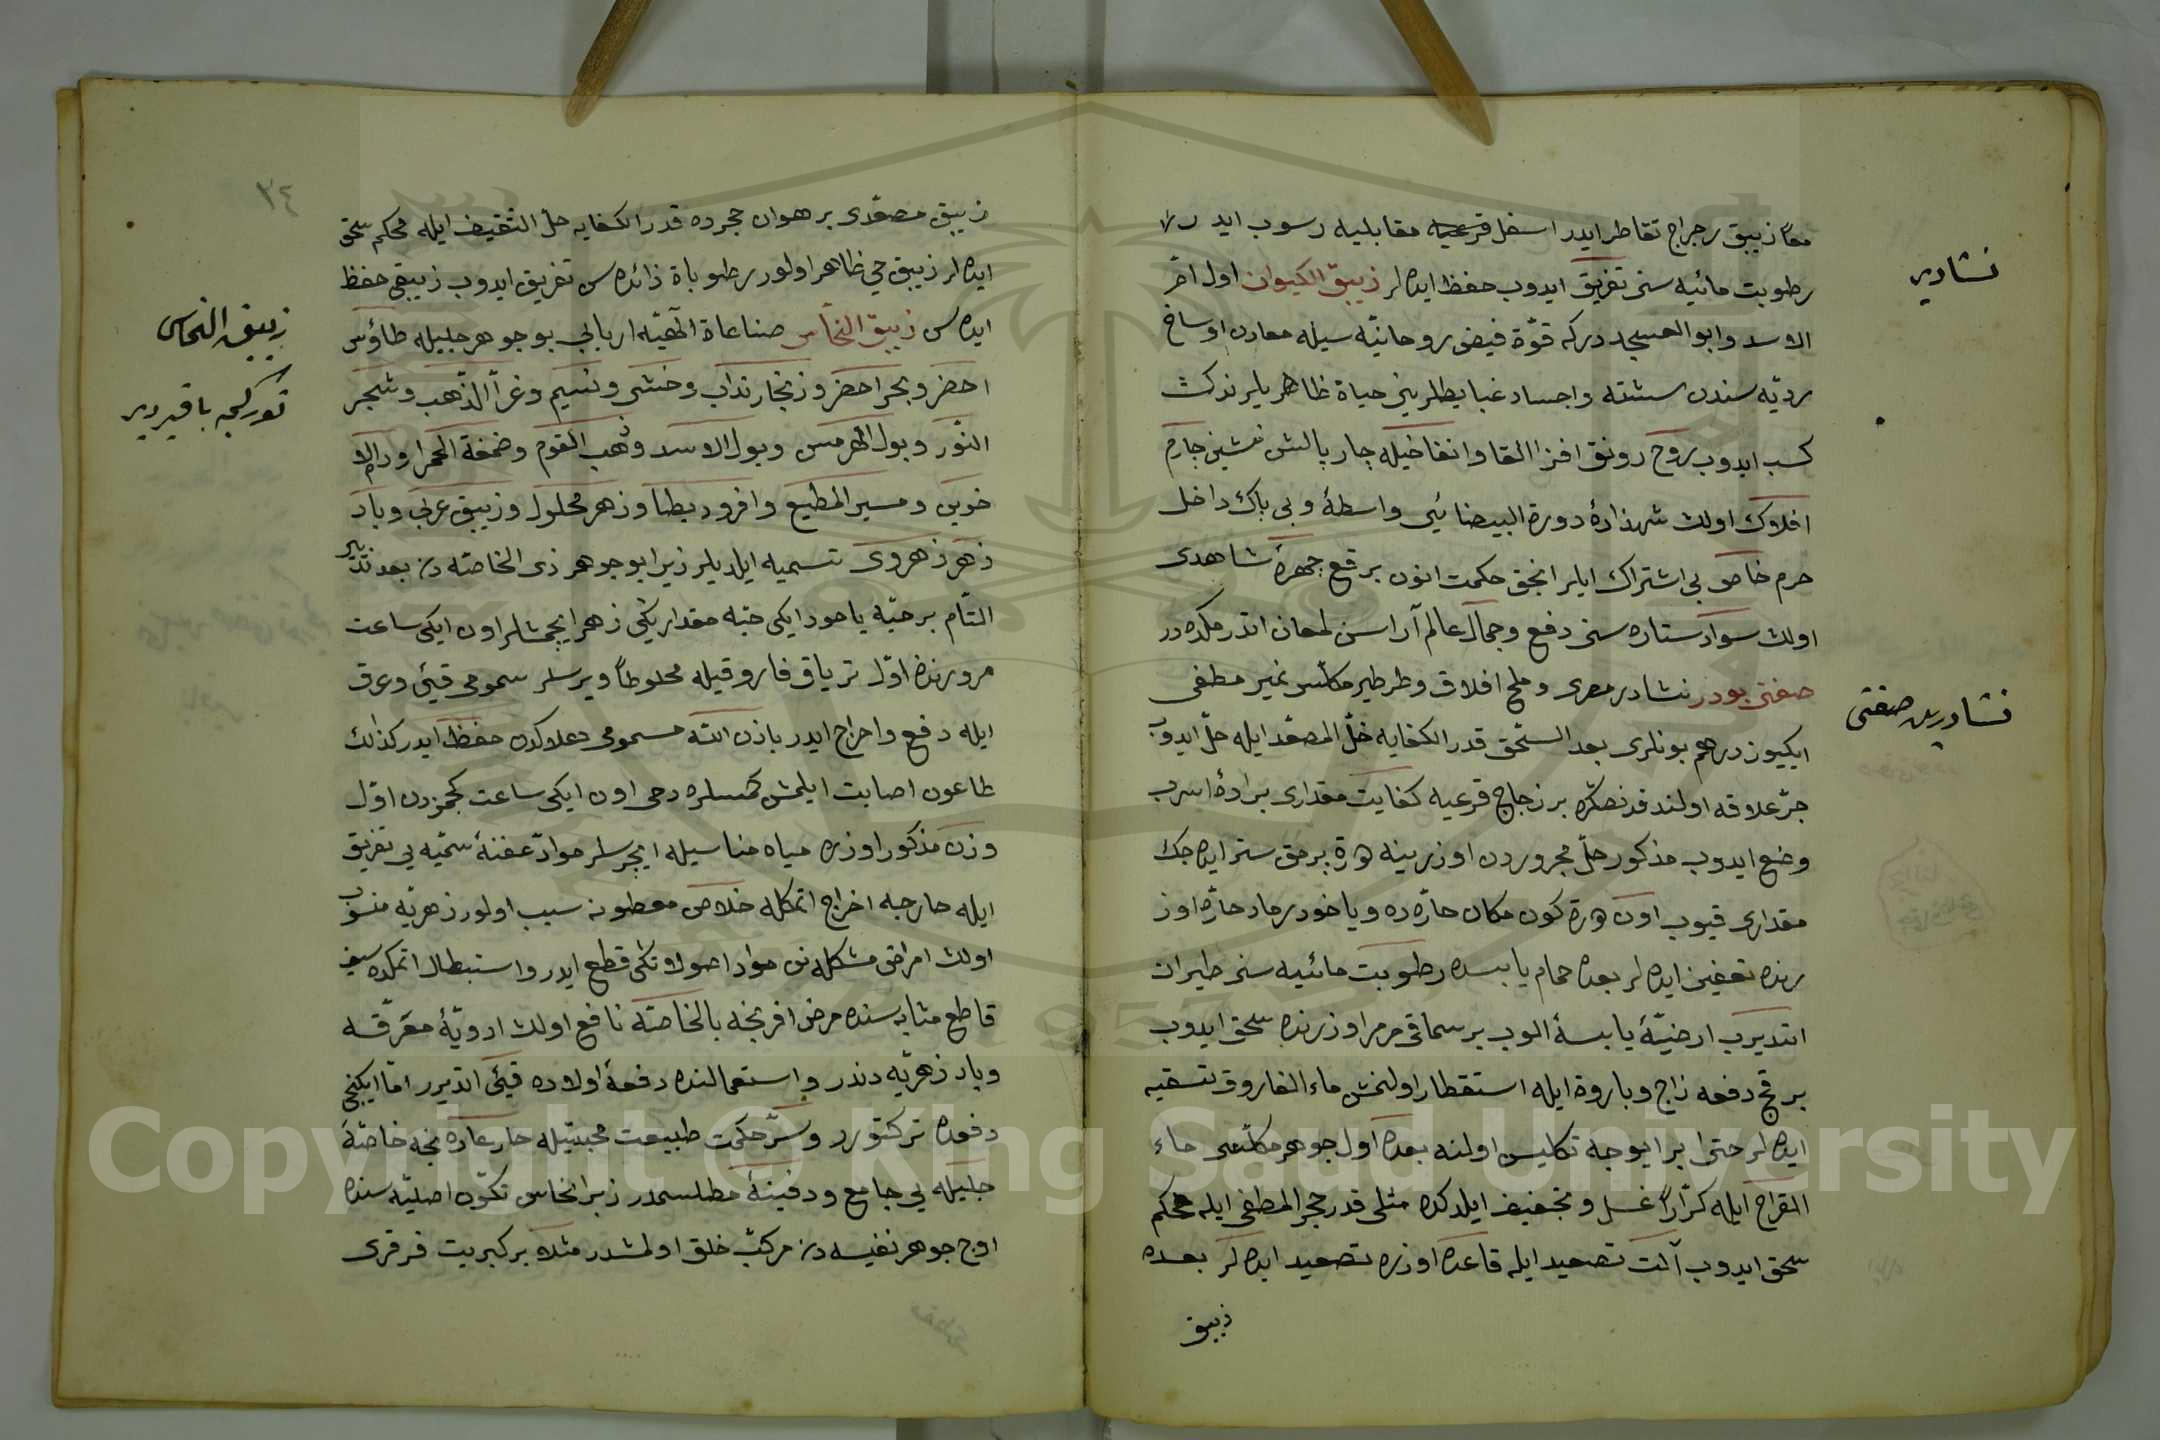 معاً زيبق رجراج تقاطر ايدر اسفل قرعيه مقابليه رسوب ايدر
رطوبت مائيه سنى تفريق ايدوب حفظ ايده لر زيبق الكيوان اول امر
الاسد وابو العسجد دركه قوّة فيض روحانيّه سيله معادن اوساخ
رديّه سندن سشته واجساد غبايطلرينى حياة ظاهر يلرندكث
كسب ايدوب روح رونق افزا القا وانفاخيله چار بالش نشين چارم
افلاك اولان شهزادۀ دورة البيضائى واسطۀ وبى باك داخل
حرم خاص بى اشتراك ايلر انجق حكمت انون برقع چهرۀ شاهدى
اولان سواد ستاره سنى دفع وجمال عالم آراسن لمعان اتدرمكده در
صفتى بودر نشادر مصرى وملح افلاق وطرطير مكلّس غير مطفى
ايكيوز درهم بونلرى بعد السّحق قدر الكفايه خلّ المصعّد ايله حلّ ايدوب
جرّ علاقه اولندقدنصكره بر زجاج قرعيه كفايت مقدارى برادۀ اسرب
وضع ايدوب مذكور حلّ مجروردن اوزرينه دورة برمق ستر ايده جك
مقدارى قيوب اون دورة كون مكان حارّه ده وياخود رماد حارّه اوز
رنده تعفين ايده لر بعده حمام يابسده رطوبت مائيه سنى طيران
اتديرب ارضيّۀ يابسۀ الوب بر سماقى مرمر اوزرنده سحق ايدوب
بر قچ دفعه زاج وباروة ايله استقطار اولنمش ماء الفاروق تسقيه
ايده لر حتى برايوجه تكليس اولنه بعده اول جوهر مكلّسى ماء
القراح ايله كرّاراً غسل وتجفيف ايلدكده مثلى قدر حجر المطفى ايله محكم
سحق ايدوب آلت تصعيد ايله قاعده اوزره تصعيد ايده لر بعده
زيبق
نشادير
نشادرين صفتى
٣٤
زيبق مصعّدى بر هوان حجرده قدر الكفايه خلّ الثقيف ايله محكم سحق
ايده لر زيبق حي ظاهر اولور رطوباة زائده سن تفريق ايدوب زيبقى حفظ
ايده سن زيبق النحاس صناعاة الٓهيّه اربابى بو جوهر جليله طاؤس
احضر وبحر احضر وزنجار تداب وخنثى ونسيم وغرآ الذّهب وشجر
النّور وبول الهرمس وبول الاسد وذهب القوم وضمغة الحمرا ودم الا
خوين ومسير المطيع وافروديطا وزهر محلول وزيبق عربى وباد
زهر زهروى تسميه ايلديلر زيرا بو جوهر ذى الخاصّه دن بعد تدبير
التّام بر حبّه ياحود ايكى حبّه مقدارينى زهر ايچمشلر اون ايكى ساعت
مرورنده اوّل ترياق فاروقيله مخلوطاً ويرسلر سمومى قيئ وعرق
ايله دفع واحراج ايدر باذن اللّه مسمومى هلاكدن حفظ ايدر كذلك
طاعون اصابت ايلمش كمسلره دحى اون ايكى ساعت كچمزدن اوّل
وزن مذكور اوزره مياه مناسيله ايچرسلر موادّ عفنۀ سمّيه يى تفريق
ايله خارجه اخراج اتمكله خلاص مطعونه سبب اولور زهريّه منسوب
اولان امراض مشكله نن مواد اصولانكى قطع ايدر واستبطال اتمكده سيف
قاطع مثابه سنده مرض افرنجه بالخاصّه نافع اولان ادويّۀ معرّقه
وباد زهريّه دندر واستعمالنده دفعۀ اولاده قيئ اتديرر امّا ايكنجى
دفعده ترككتورر وسرّ حكمت طبيعت محبتيله خارعاده نجه خاصّۀ
جليله يى جامع ودفينۀ مطلسمدر زيرا نحاس تكوّن اصليّه سنده
اوج جوهر نفيسه دن مركّب خلق اولمشدر مثلا بر كبريت فرفرى
زيبق النحاس
توركيجه باقيردير
Copyright © King Saud University
1957